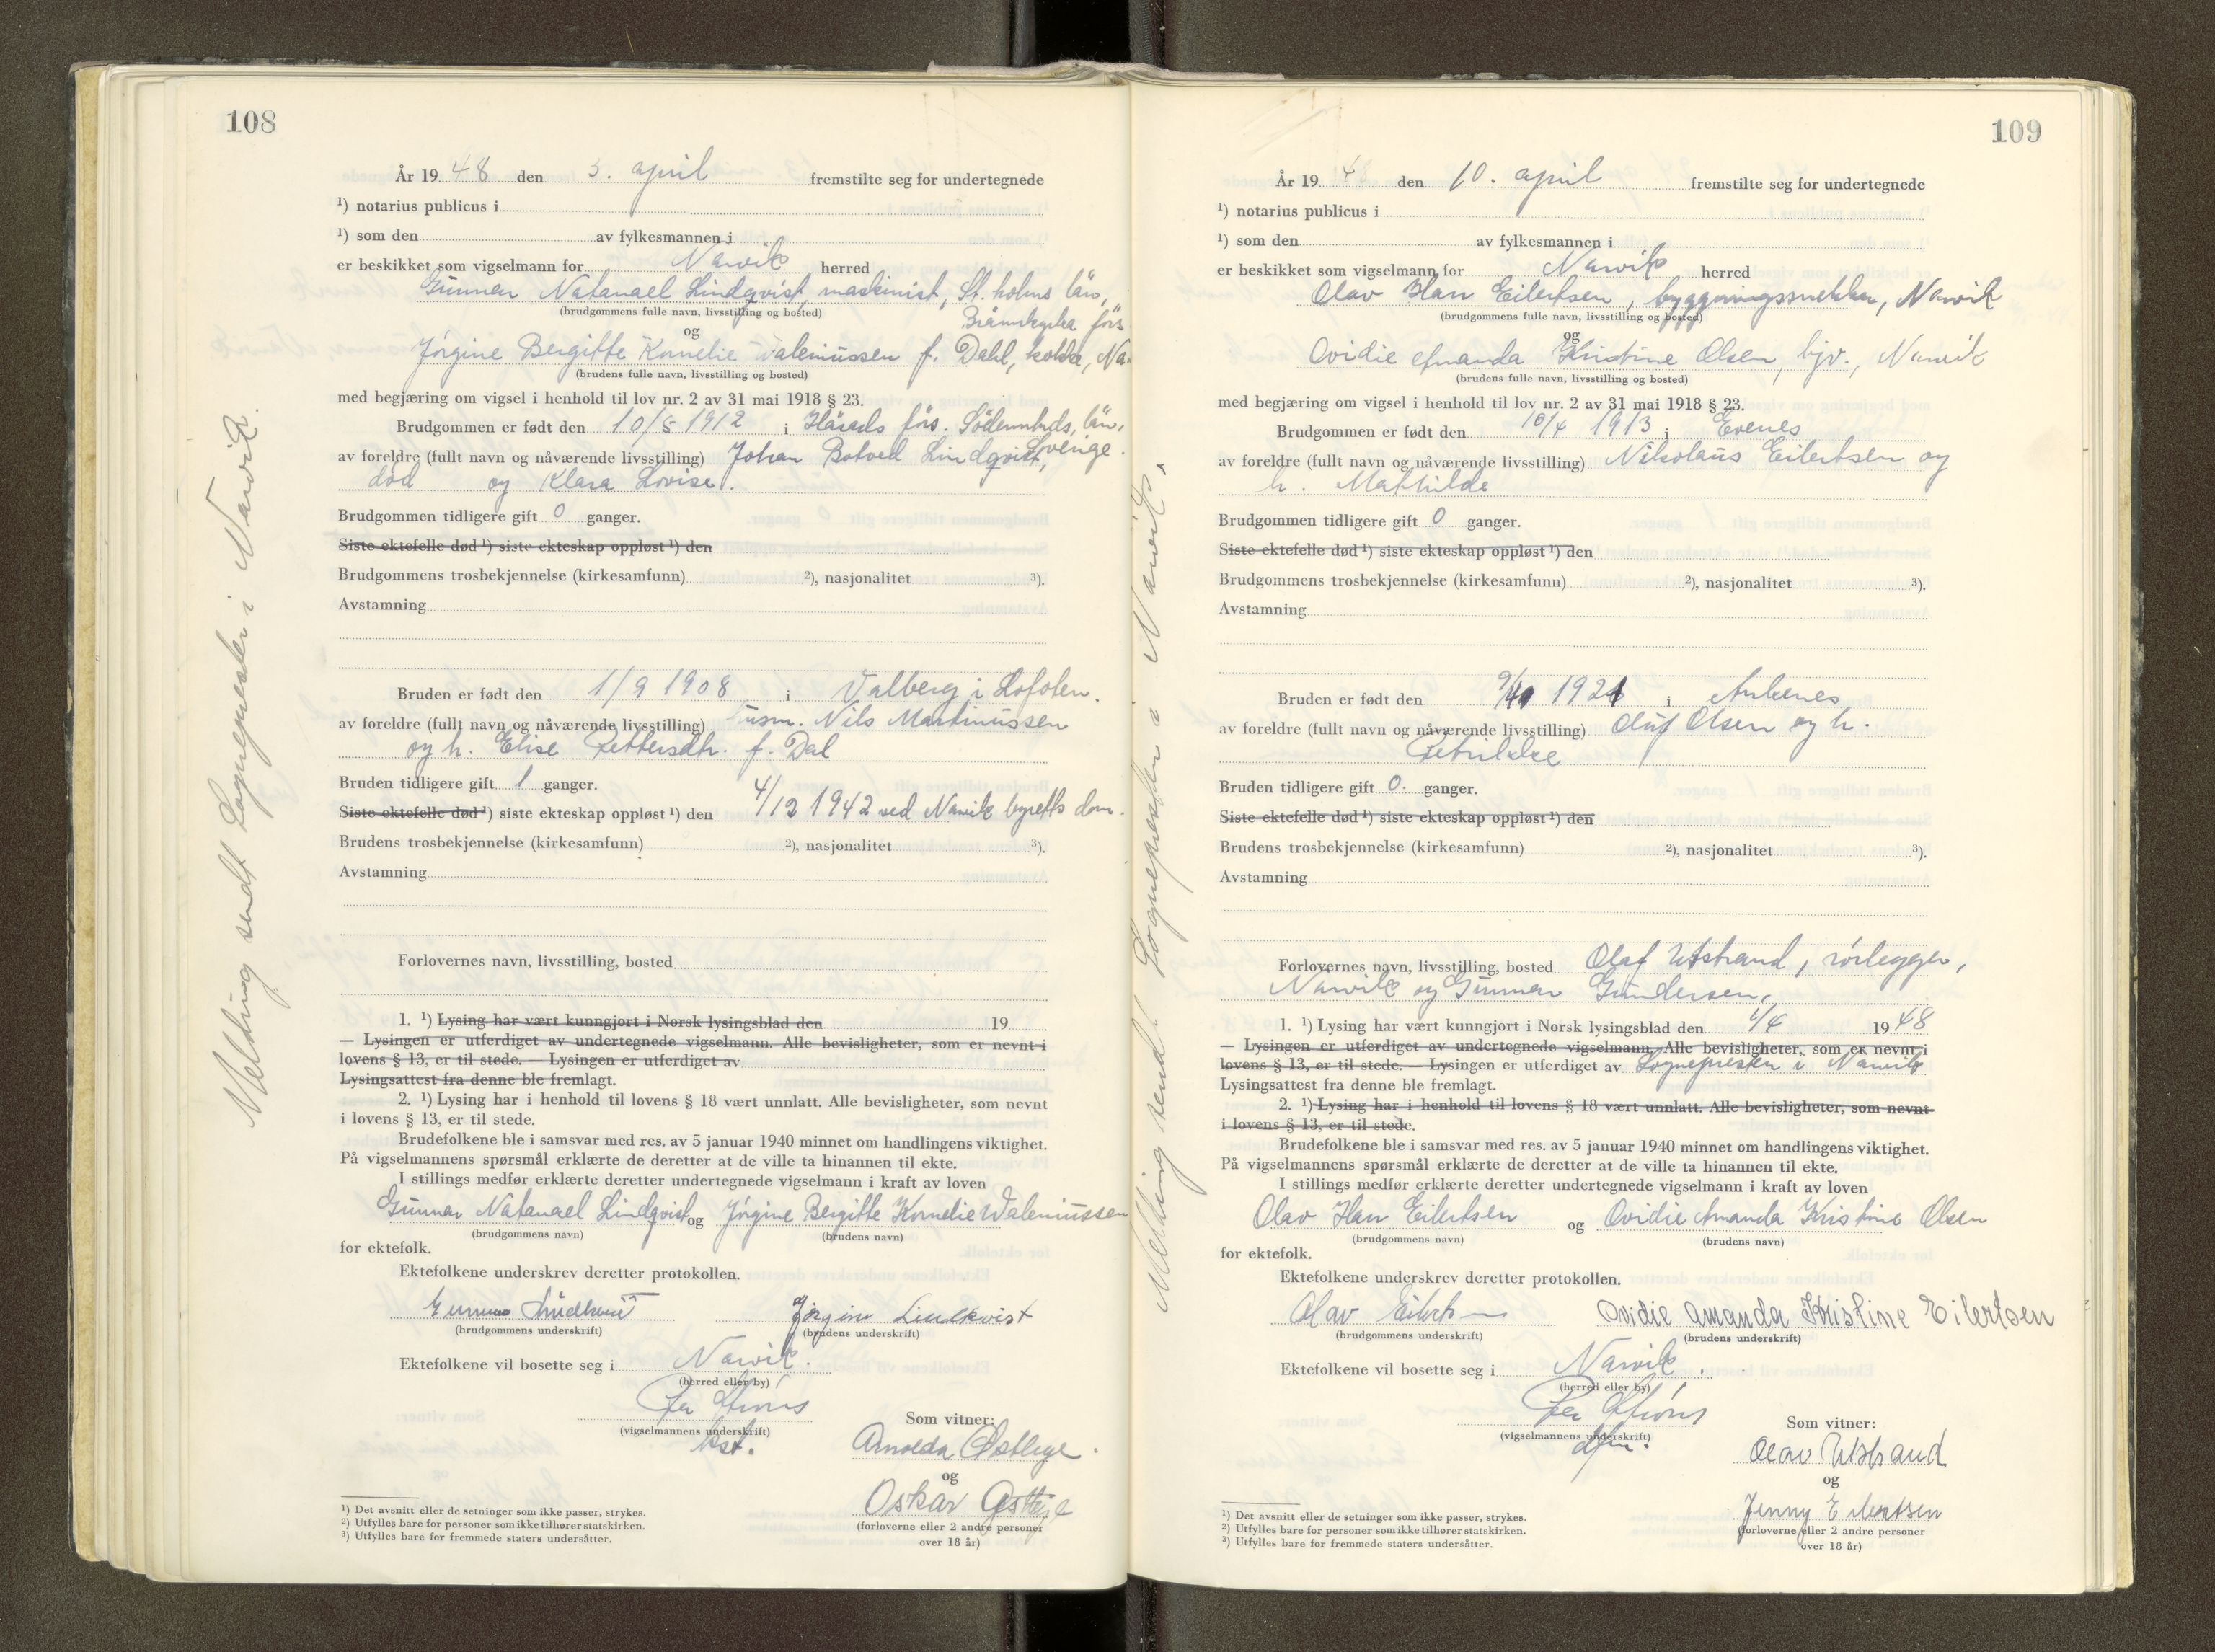 108
År 19 48 den 3. april fremstilte seg for undertegnede
¹) notarius publicus i
¹) som den av fylkesmannen i
er beskikket som vigselmann for Narvik herred
Gunnar Natanael Lindqvist, maskinist, St. holms län,
(brudgommens fulle navn, livsstilling og bosted)
Brännkyrka förs
og
Jørgine Bergitte Kornelie Valeniussen f. Dahl, kokke, Na
(brudens fulle navn, livsstilling og bosted)
med begjæring om vigsel i henhold til lov nr. 2 av 31 mai 1918 § 23.
Brudgommen er født den 10/5 1912 i Härads förs. Södermlnds, län,
Sverige.
av foreldre (fullt navn og nåværende livsstilling) Johan Botved Lindqvist,
død og Klara Lovise.
Brudgommen tidligere gift 0 ganger.
Siste ektefelle død ¹) siste ekteskap oppløst ¹) den
Brudgommens trosbekjennelse (kirkesamfunn) ²), nasjonalitet ³).
Avstamning
Bruden er født den 1/9 1908 i Valberg i Lofoten.
av foreldre (fullt navn og nåværende livsstilling) Nils Martinussen
og h. Elise Pettersdtr. f. Dal
Bruden tidligere gift 1 ganger.
Siste ektefelle død ¹) siste ekteskap oppløst ¹) den 4/12 1942 ved Narvik byretts dom.
Brudens trosbekjennelse (kirkesamfunn) ²), nasjonalitet ³).
Avstamning
Forlovernes navn, livsstilling, bosted
1. ¹) Lysing har vært kunngjort i Norsk lysingsblad den 19
— Lysingen er utferdiget av undertegnede vigselmann. Alle bevisligheter, som er nevnt i
lovens § 13, er til stede. — Lysingen er utferdiget av
Lysingsattest fra denne ble fremlagt.
2. ¹) Lysing har i henhold til lovens § 18 vært unnlatt. Alle bevisligheter, som nevnt
i lovens § 13, er til stede.
Brudefolkene ble i samsvar med res. av 5 januar 1940 minnet om handlingens viktighet.
På vigselmannens spørsmål erklærte de deretter at de ville ta hinannen til ekte.
I stillings medfør erklærte deretter undertegnede vigselmann i kraft av loven
Gunnar Natanael Lindqvist og Jørgine Bergitte Kornelie Valeniussen
(brudgommens navn) (brudens navn)
for ektefolk.
Ektefolkene underskrev deretter protokollen.
Gunnar Lindkvist Jørgine Lindkvist
(brudgommens underskrift) (brudens underskrift)
Ektefolkene vil bosette seg i Narvik.
(herred eller by)
Per
(vigselmannens underskrift)
kst.
Som vitner:
Arnolda
og
Oskar
(forloverne eller 2 andre personer
over 18 år)
¹) Det avsnitt eller de setninger som ikke passer, strykes.
²) Utfylles bare for personer som ikke tilhører statskirken.
³) Utfylles bare for fremmede staters undersåtter.
Melding sendt Sognepresten i Narvik.
109
År 19 48 den 10. april fremstilte seg for undertegnede
¹) notarius publicus i
¹) som den av fylkesmannen i
er beskikket som vigselmann for Narvik herred
Olav Han Eilertsen, bygningssnekker, Narvik
(brudgommens fulle navn, livsstilling og bosted)
og
Ovidie Amanda Kristine Olsen, hjv., Narvik
(brudens fulle navn, livsstilling og bosted)
med begjæring om vigsel i henhold til lov nr. 2 av 31 mai 1918 § 23.
Brudgommen er født den 10/4 1913 i Evenes
av foreldre (fullt navn og nåværende livsstilling) Nikolaus Eilertsen og
h. Mathilde
Brudgommen tidligere gift 0 ganger.
Siste ektefelle død ¹) siste ekteskap oppløst ¹) den
Brudgommens trosbekjennelse (kirkesamfunn) ²), nasjonalitet ³).
Avstamning
Bruden er født den 1921 i Ankenes
av foreldre (fullt navn og nåværende livsstilling) Oluf Olsen og h.
Petrikke
Bruden tidligere gift 0. ganger.
Siste ektefelle død ¹) siste ekteskap oppløst ¹) den
Brudens trosbekjennelse (kirkesamfunn) ²), nasjonalitet ³).
Avstamning
Forlovernes navn, livsstilling, bosted Olaf Utstrand, rørlegger,
Narvik og Gunnar Gundersen,
1. ¹) Lysing har vært kunngjort i Norsk lysingsblad den 1/4 19 48
— Lysingen er utferdiget av undertegnede vigselmann. Alle bevisligheter, som er nevnt i
lovens § 13, er til stede. — Lysingen er utferdiget av Sognepresten i Narvik
Lysingsattest fra denne ble fremlagt.
2. ¹) Lysing har i henhold til lovens § 18 vært unnlatt. Alle bevisligheter, som nevnt
i lovens § 13, er til stede.
Brudefolkene ble i samsvar med res. av 5 januar 1940 minnet om handlingens viktighet.
På vigselmannens spørsmål erklærte de deretter at de ville ta hinannen til ekte.
I stillings medfør erklærte deretter undertegnede vigselmann i kraft av loven
Olav Han Eilertsen og Ovidie Amanda Kristine Olsen
(brudgommens navn) (brudens navn)
for ektefolk.
Ektefolkene underskrev deretter protokollen.
Olav Eilertsen Ovidie Amanda Kristine Eilertsen
(brudgommens underskrift) (brudens underskrift)
Ektefolkene vil bosette seg i Narvik.
(herred eller by)
Per
(vigselmannens underskrift)
dfm.
Som vitner:
Olav Utstrand
og
Jenny Eilertsen
(forloverne eller 2 andre personer
over 18 år)
¹) Det avsnitt eller de setninger som ikke passer, strykes.
²) Utfylles bare for personer som ikke tilhører statskirken.
³) Utfylles bare for fremmede staters undersåtter.
Melding sendt Sognepresten i Narvik.